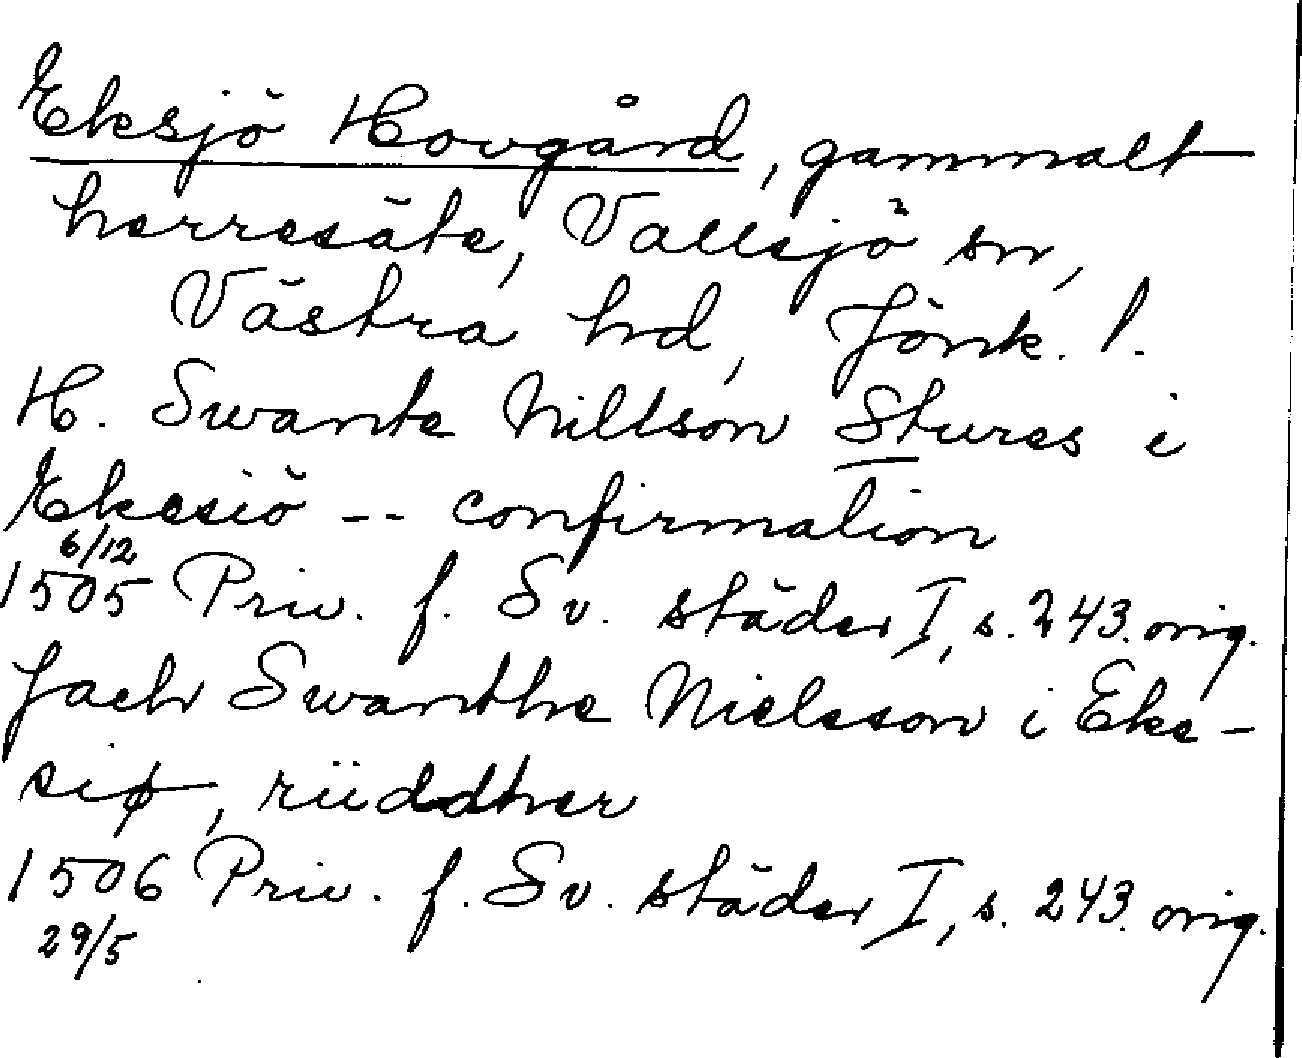 Eksjö Hovgård, gammalt
herresäte, Vallsjö sn,
Västra hd, Jönk. l.
H. Swante Niltson Stures i
Ekesiö -- confirmation
6/12
1505 Priv. f. Sv. städer I, s. 243. orig.
Jach Swanthe Nielsson i Eke-
siø, riiddher
1506 Priv. f. Sv. städer I, s. 243. orig.
29/5